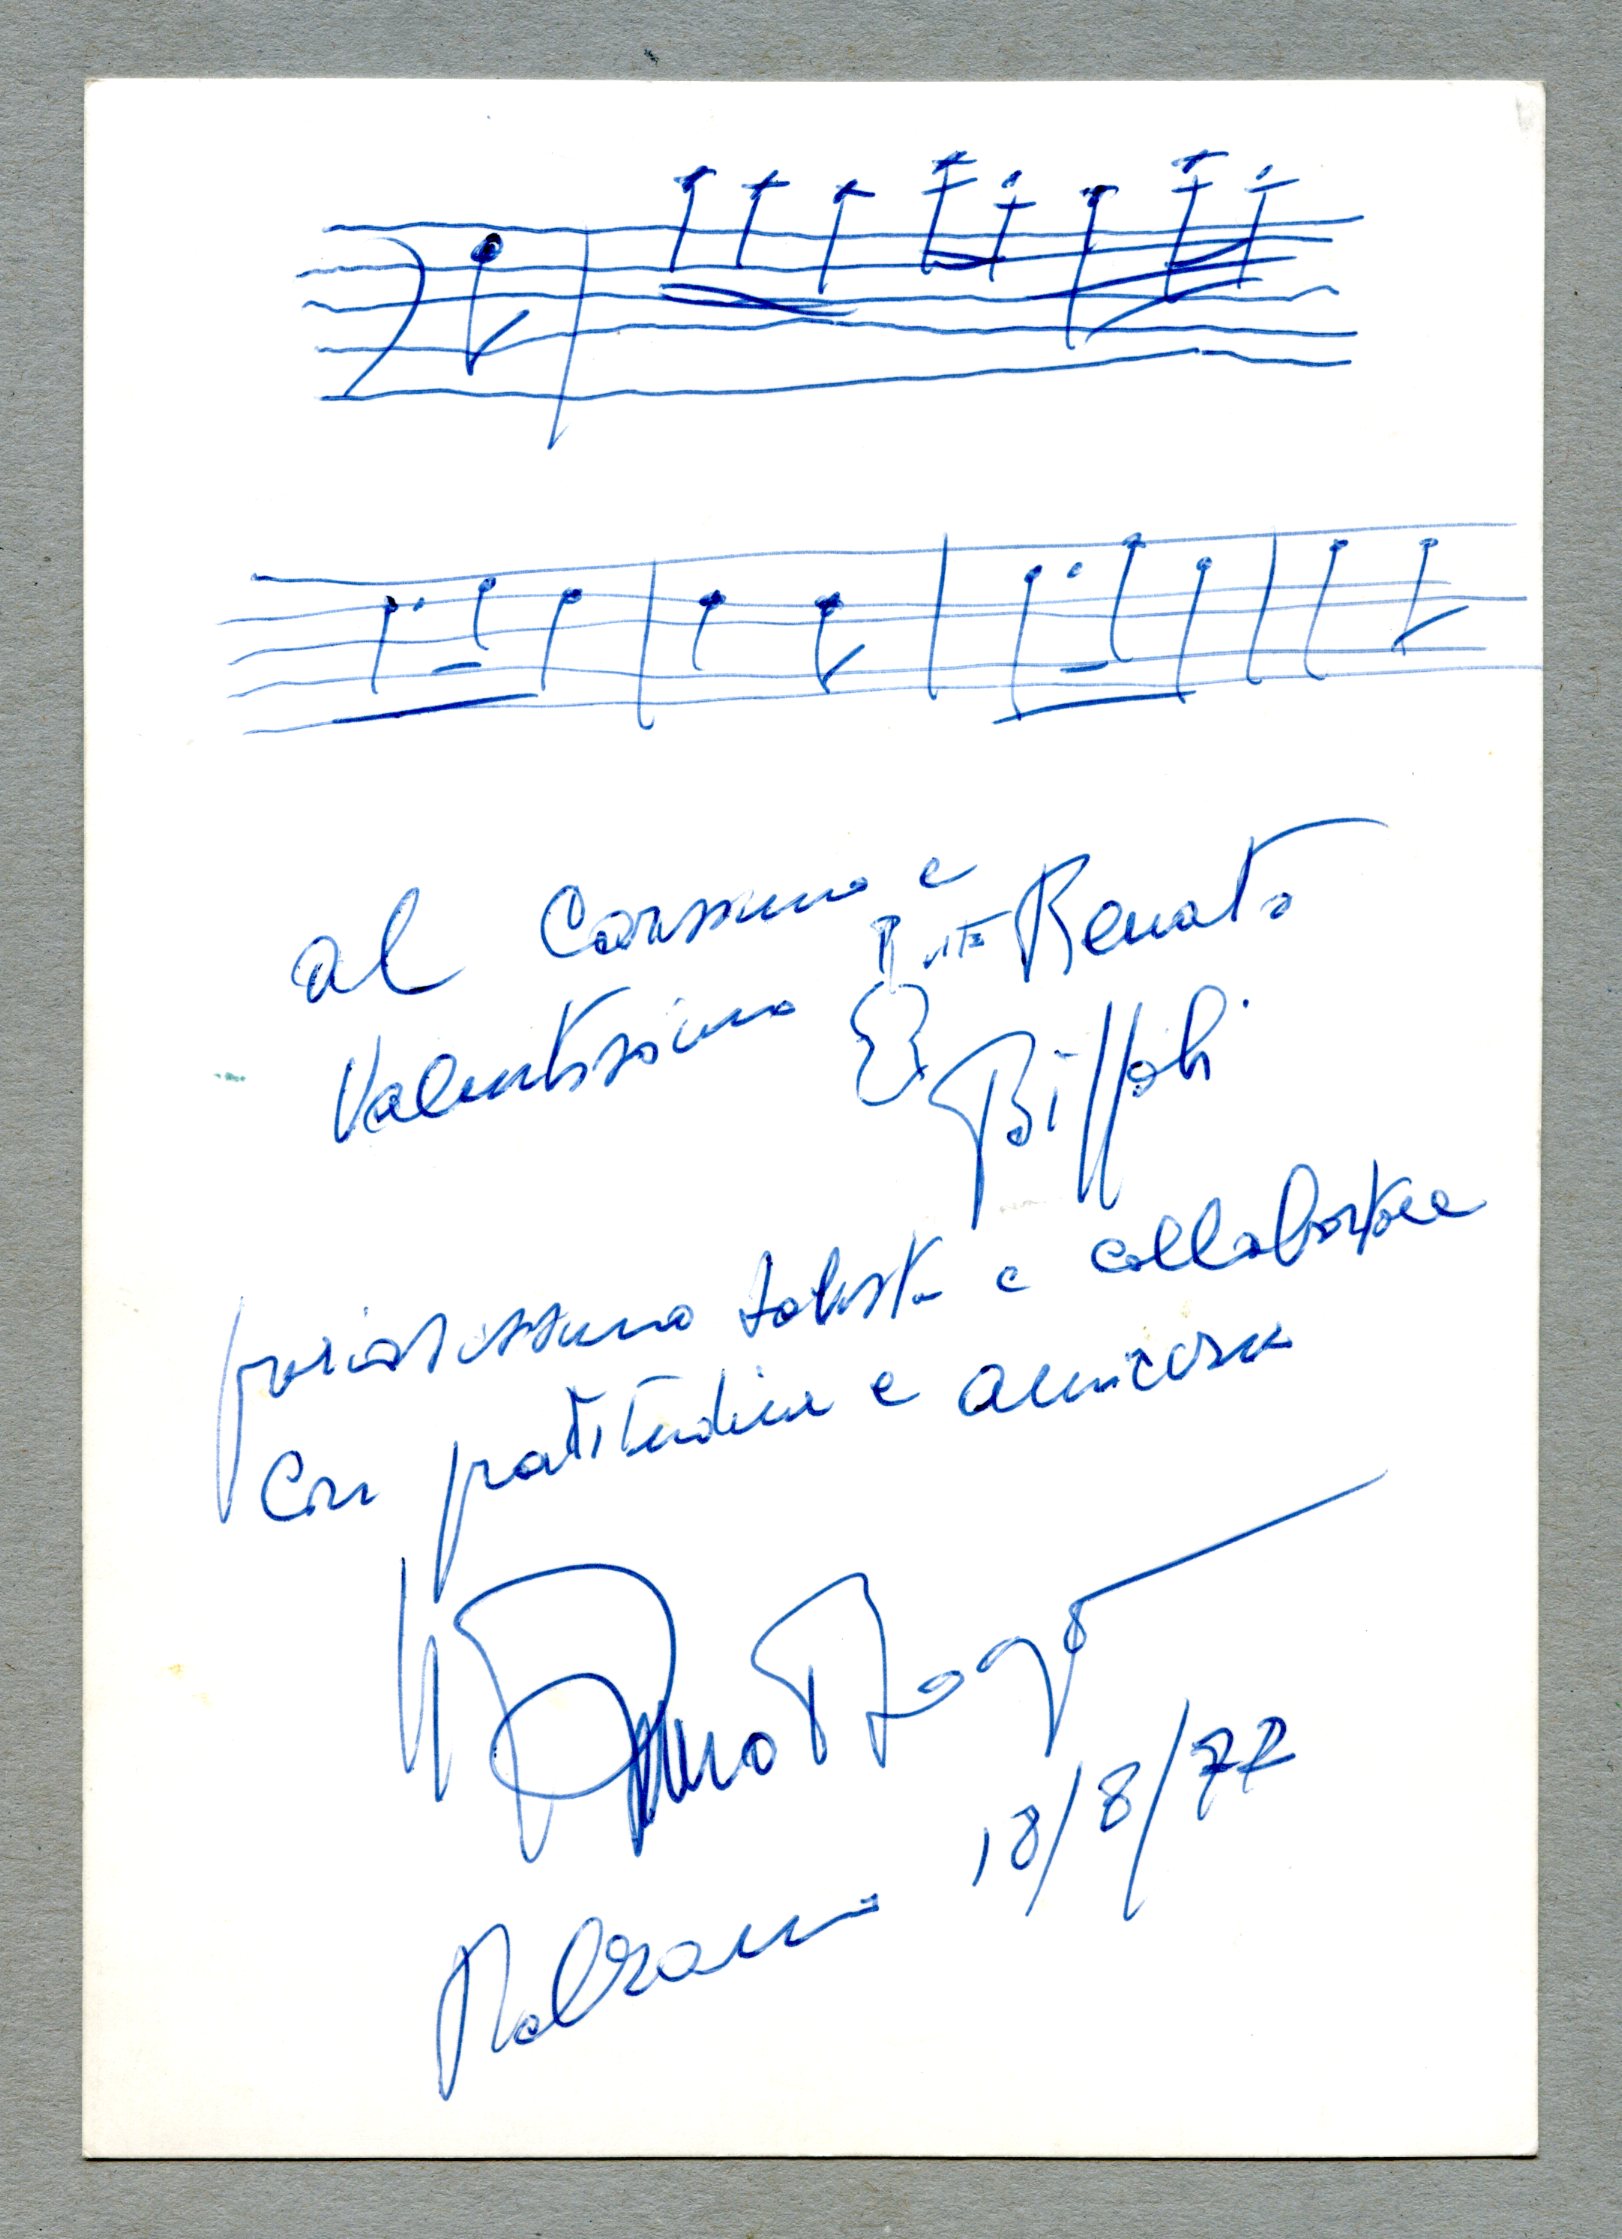 al Carissimo e
Valentissimo Renato
Biffoli
graditissimo solista e collaboratore
Con gratitudine e amicizia
Bruno Rigo
18/8/77